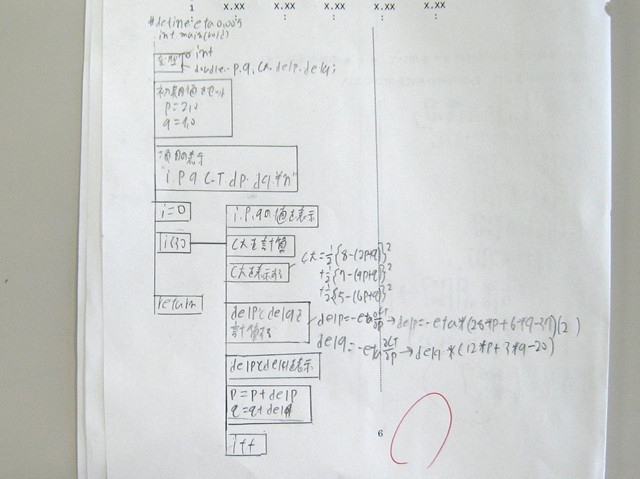 1 x.xx x.xx x.xx x.xx x.xx
: : : :
#define eta 0.005
int main(void)
int
double p, q, ct, delp, delq;
p=2.0
q=1.0
項目の表示
"i p q C-T dp dq ¥n"
i=0
i.p.qの値を表示
ctを計算
ct=1/2{8-(2p+q)}²
+1/2{7-(4p+q)}²
+1/2{5-(6p+q)}²
ctを表示する
return
delpとdelqを
計算する
delp=-eta ∂CT/∂p → delp=-eta*(28*p+6*q-37)(2)
delq=-eta ∂CT/∂p → delq *(12*p+3*q-20)
delpとdelqを表示
p=p+delp
q=q+delq
i++
6